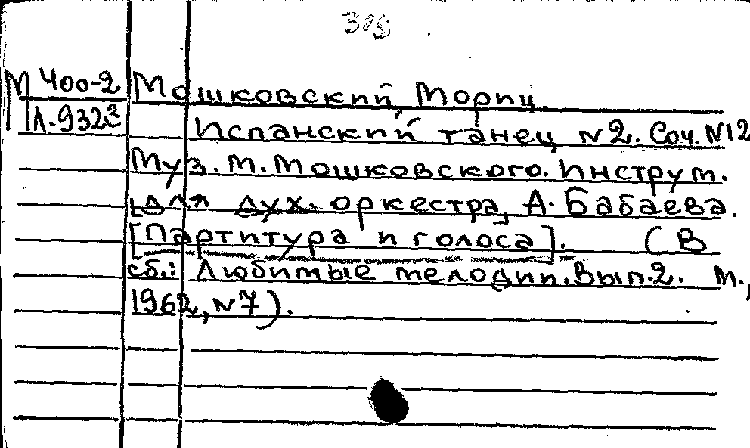 М 400-2
Л-932³
Мошковский, Мориц
Испанский танец №2. Соч. №12
Муз. М. Мошковского. Инструм.
для дух. оркестра, А. Бабаева.
[Партитура и голоса]. (В
сб.: Любимые мелодии. Вып. 2. М.,
1962, №7).